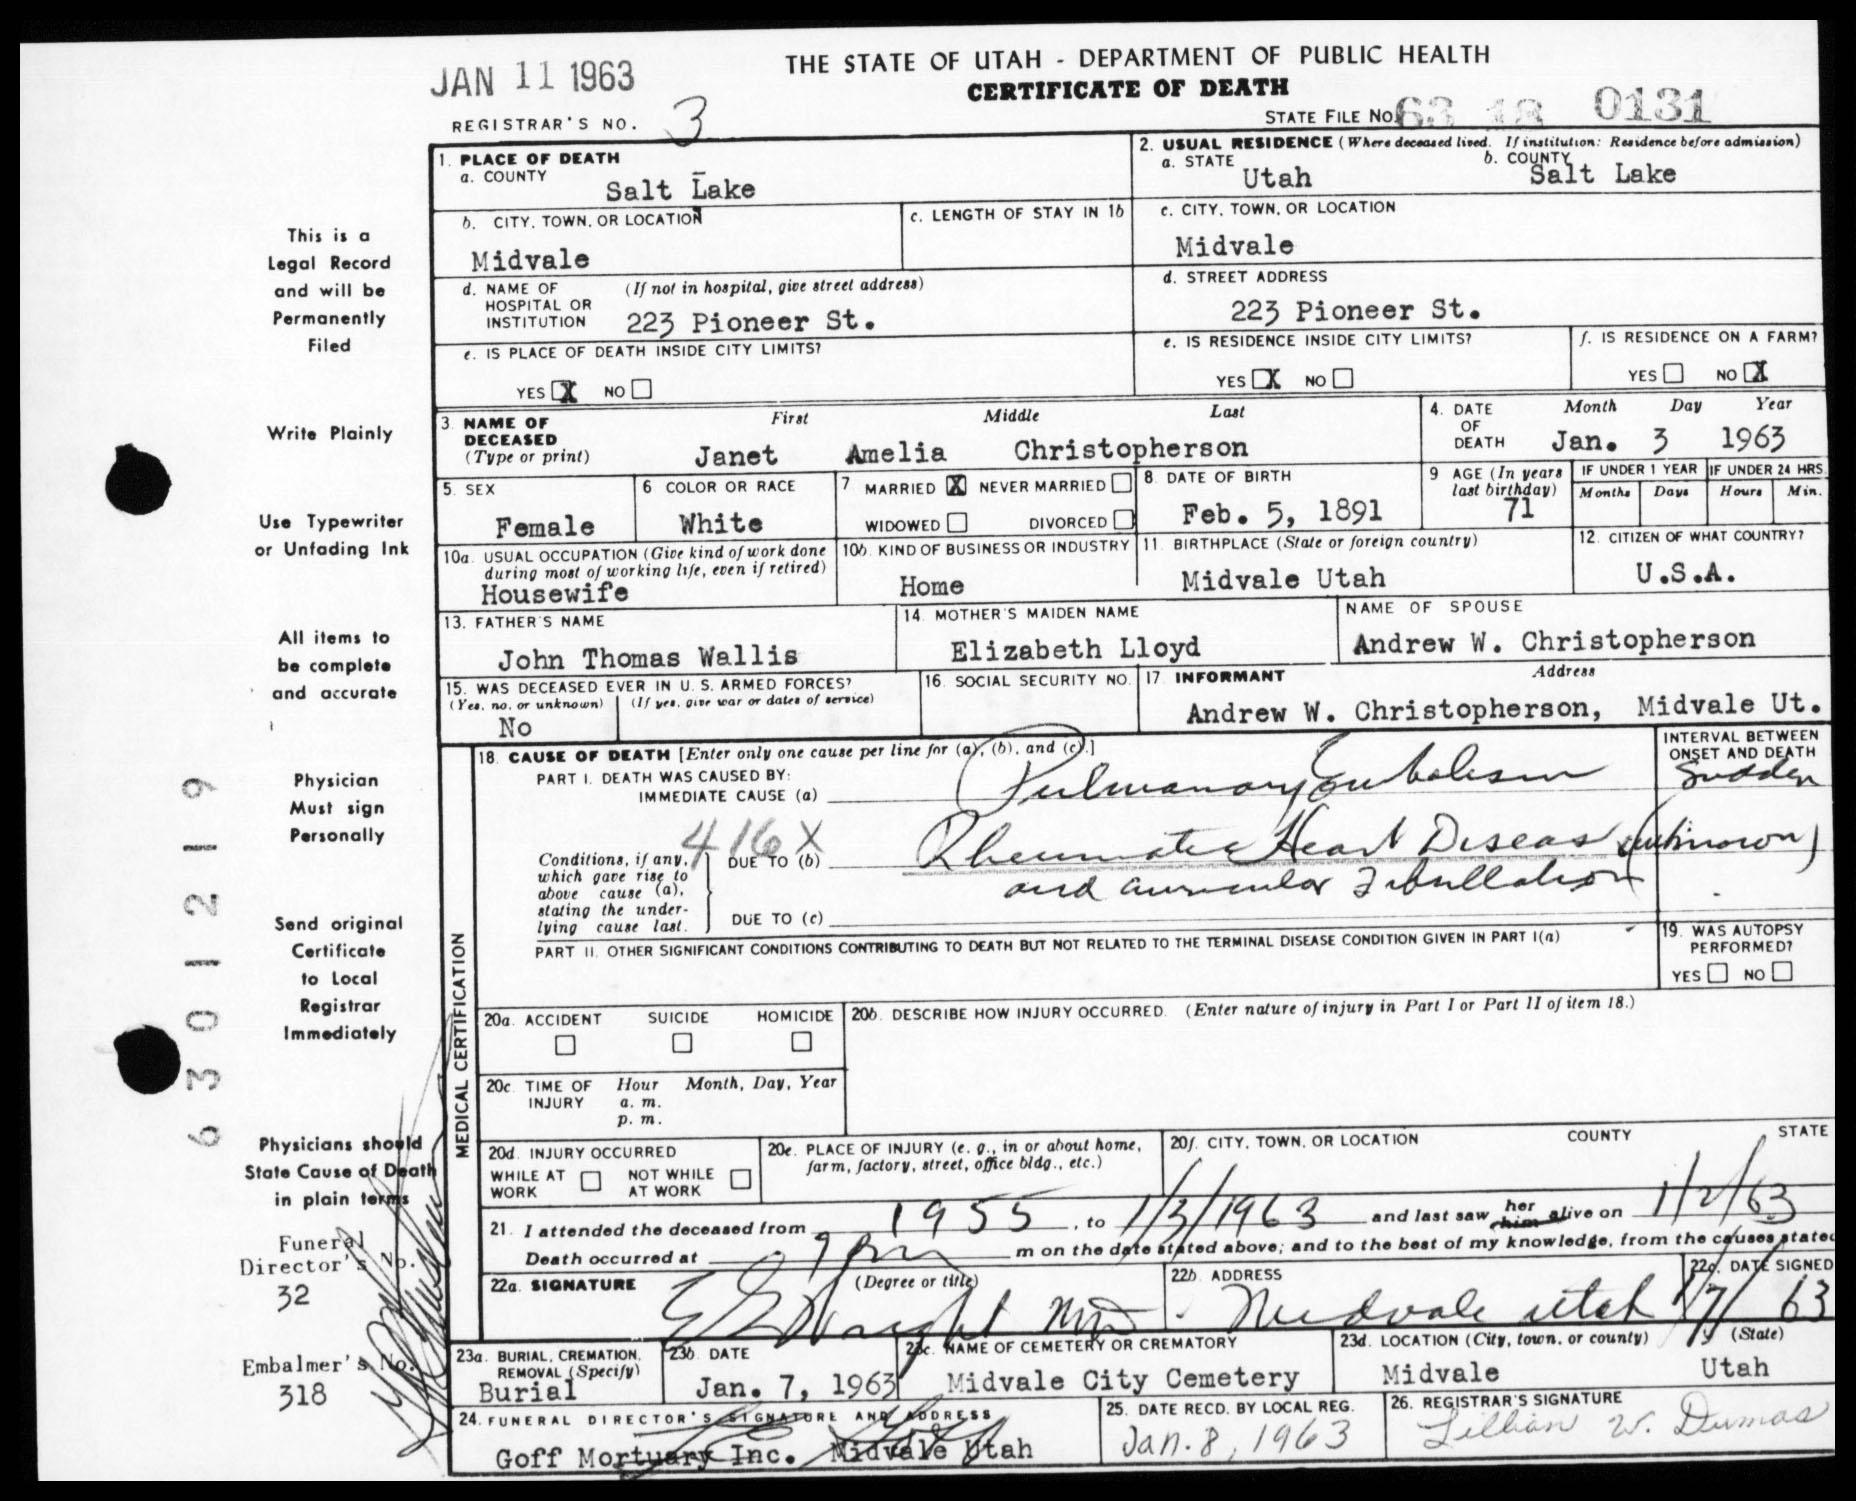 THE STATE OF UTAH - DEPARTMENT OF PUBLIC HEALTH
JAN 11 1963
CERTIFICATE OF DEATH
REGISTRAR'S NO. 3
STATE FILE NO. 63 18 0131
1. PLACE OF DEATH
a. COUNTY
Salt Lake
2. USUAL RESIDENCE (Where deceased lived. If institution: Residence before admission)
a. STATE Utah
b. COUNTY Salt Lake
b. CITY, TOWN, OR LOCATION
Midvale
c. LENGTH OF STAY IN 1b
c. CITY, TOWN, OR LOCATION
Midvale
d. NAME OF HOSPITAL OR INSTITUTION
(If not in hospital, give street address)
223 Pioneer St.
d. STREET ADDRESS
223 Pioneer St.
e. IS PLACE OF DEATH INSIDE CITY LIMITS?
YES X NO
e. IS RESIDENCE INSIDE CITY LIMITS?
YES X NO
f. IS RESIDENCE ON A FARM?
YES NO X
3. NAME OF DECEASED
(Type or print)
First Middle Last
Janet Amelia Christopherson
4. DATE OF DEATH
Month Day Year
Jan. 3 1963
5. SEX
Female
6 COLOR OR RACE
White
7 MARRIED X NEVER MARRIED
WIDOWED DIVORCED
8. DATE OF BIRTH
Feb. 5, 1891
9 AGE (In years last birthday)
71
IF UNDER 1 YEAR
Months Days
IF UNDER 24 HRS.
Hours Min.
10a. USUAL OCCUPATION (Give kind of work done
during most of working life, even if retired)
Housewife
10b. KIND OF BUSINESS OR INDUSTRY
Home
11. BIRTHPLACE (State or foreign country)
Midvale Utah
12. CITIZEN OF WHAT COUNTRY?
U.S.A.
13. FATHER'S NAME
John Thomas Wallis
14. MOTHER'S MAIDEN NAME
Elizabeth Lloyd
NAME OF SPOUSE
Andrew W. Christopherson
15. WAS DECEASED EVER IN U.S. ARMED FORCES?
(Yes, no, or unknown) (If yes, give war or dates of service)
No
16. SOCIAL SECURITY NO.
17. INFORMANT Address
Andrew W. Christopherson, Midvale Ut.
18. CAUSE OF DEATH [Enter only one cause per line for (a), (b), and (c).]
INTERVAL BETWEEN
ONSET AND DEATH
PART I. DEATH WAS CAUSED BY:
IMMEDIATE CAUSE (a) Pulmonary Embolism
Sudden
416X
Conditions, if any,
which gave rise to
above cause (a),
stating the under-
lying cause last.
DUE TO (b) Rheumatic Heart Disease (unknown)
and auricular Fibrillation
DUE TO (c)
PART II. OTHER SIGNIFICANT CONDITIONS CONTRIBUTING TO DEATH BUT NOT RELATED TO THE TERMINAL DISEASE CONDITION GIVEN IN PART I(a)
19. WAS AUTOPSY
PERFORMED?
YES NO
MEDICAL CERTIFICATION
20a. ACCIDENT SUICIDE HOMICIDE
20b. DESCRIBE HOW INJURY OCCURRED. (Enter nature of injury in Part I or Part II of item 18.)
20c. TIME OF INJURY
Hour Month, Day, Year
a. m.
p. m.
20d. INJURY OCCURRED
WHILE AT WORK
NOT WHILE AT WORK
20e. PLACE OF INJURY (e. g., in or about home,
farm, factory, street, office bldg., etc.)
20f. CITY, TOWN, OR LOCATION COUNTY STATE
21. I attended the deceased from 1955, to 1/3/1963 and last saw her him alive on 1/2/63
Death occurred at 9 pm m on the date stated above; and to the best of my knowledge, from the causes stated
22a. SIGNATURE (Degree or title)
MD
22b. ADDRESS
Midvale Utah
22c. DATE SIGNED
1/7/63
23a. BURIAL, CREMATION,
REMOVAL (Specify)
Burial
23b. DATE
Jan. 7, 1963
23c. NAME OF CEMETERY OR CREMATORY
Midvale City Cemetery
23d. LOCATION (City, town, or county) (State)
Midvale Utah
24. FUNERAL DIRECTOR'S SIGNATURE AND ADDRESS
Goff Mortuary Inc. Midvale Utah
25. DATE RECD. BY LOCAL REG.
Jan. 8, 1963
26. REGISTRAR'S SIGNATURE
Lillian W. Dumas
This is a
Legal Record
and will be
Permanently
Filed
Write Plainly
Use Typewriter
or Unfading Ink
All items to
be complete
and accurate
Physician
Must sign
Personally
Send original
Certificate
to Local
Registrar
Immediately
Physicians should
State Cause of Death
in plain terms
Funeral
Director's No.
32
Embalmer's No.
318
6301219